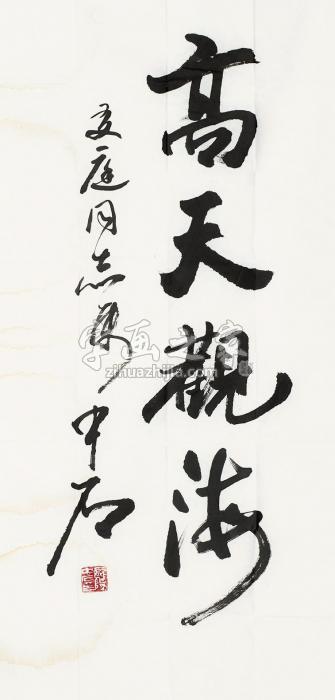 高天觀海
友庭同志属
中石
字画之家
zihuazhijia.com